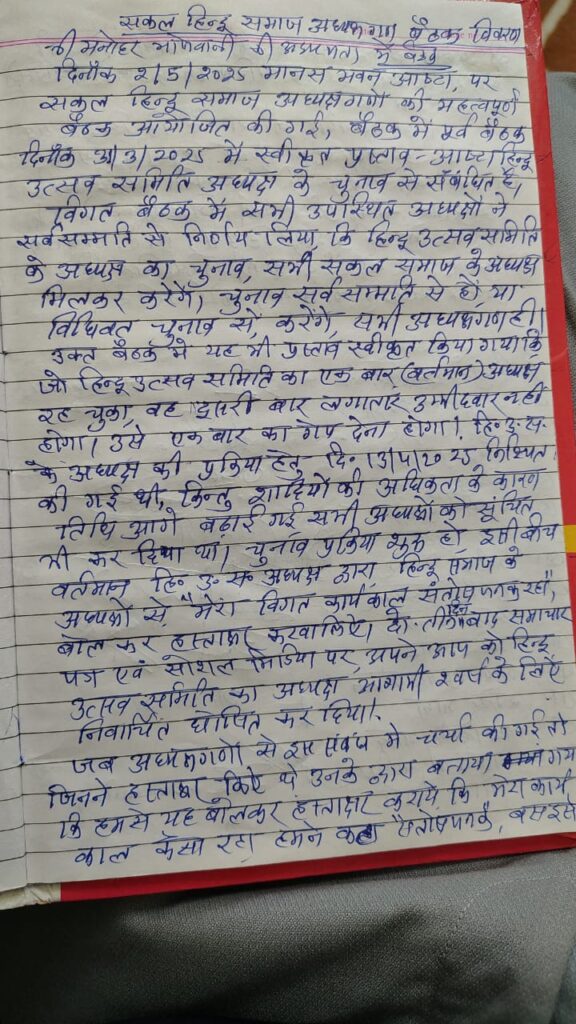 सकल हिन्दू समाज अध्यक्षगण बैठक विवरण
श्री मनोहर भोजवानी की अध्यक्षता में बैठक
दिनाँक 2/5/2025 मानस भवन आष्टा, पर
सकल हिन्दू समाज अध्यक्षगणों की महत्वपूर्ण
बैठक आयोजित की गई, बैठक में पूर्व बैठक
दिनाँक 3/3/2025 में स्वीकृत प्रस्ताव - आष्टा हिन्दू
उत्सव समिति अध्यक्ष के चुनाव से संबंधित है,
विगत बैठक में सभी उपस्थित अध्यक्षों ने
सर्वसम्मति से निर्णय लिया कि हिन्दू उत्सव समिति
के अध्यक्ष का चुनाव, सभी सकल समाज के अध्यक्ष
मिलकर करेंगें, चुनाव सर्व सम्मति से हो, या
विधिवत चुनाव से, करेंगे, सभी अध्यक्षगण ही।
उक्त बैठक में यह भी प्रस्ताव स्वीकृत किया गया कि
जो हिन्दू उत्सव समिति का एक बार (वर्तमान) अध्यक्ष
रह चुका, वह दूसरी बार लगातार उम्मीदवार नहीं
होगा। उसे एक बार का गेप देना होगा। हि. उ. स.
के अध्यक्ष की प्रक्रिया हेतु दि. 13/4/2025 निश्चित
की गई थी, किन्तु शादियों की अधिकता के कारण
तिथि आगे बढ़ाई गई सभी अध्यक्षों को सूचित
भी कर दिया था। चुनाव प्रक्रिया शुरू हो इसी बीच
वर्तमान हि. उ. स. अध्यक्ष द्वारा हिन्दू समाज के
अध्यक्षों से "मेरा विगत कार्यकाल संतोषजनक रहा",
बोल कर हस्ताक्षर करवा लिए, दो-तीन दिन बाद समाचार
पत्र एवं सोशल मिडिया पर अपने आप को हिन्दू
उत्सव समिति का अध्यक्ष आगामी वर्ष के लिए
निर्वाचित घोषित कर दिया।
जब अध्यक्षगणों से इस संबंध में चर्चा की गई तो
जिनने हस्ताक्षर किए थे उनके द्वारा बताया गया
कि हमसे यह बोलकर हस्ताक्षर कराये कि मेरा कार्य
काल कैसा रहा हमने कहा संतोषजनक, बस इसे